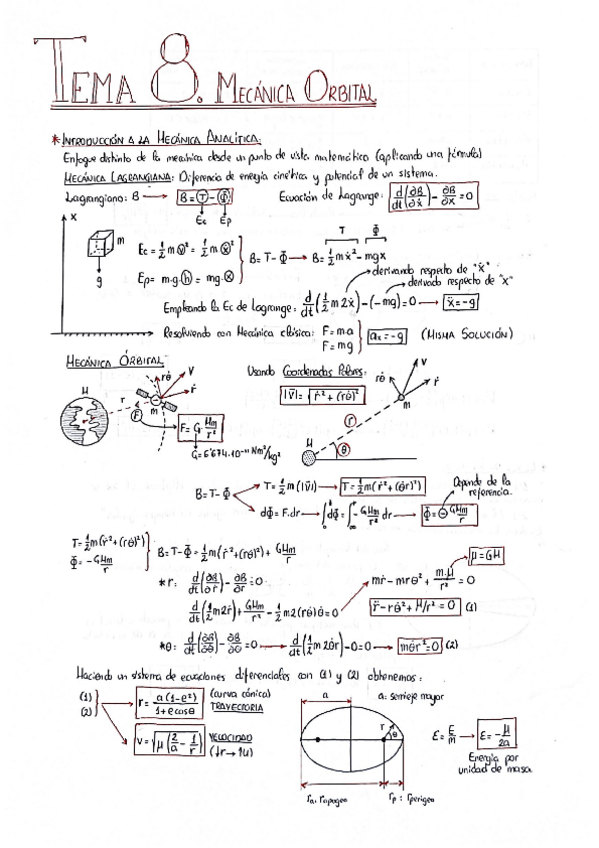 TEMA 8. MECÁNICA ORBITAL
* INTRODUCCIÓN A LA MECÁNICA ANALÍTICA:
Enfoque distinto de la mecánica desde un punto de vista matemático (aplicando una fórmula)
MECÁNICA LAGRANGIANA: Diferencia de energía cinética y potencial de un sistema.
Lagrangiano: B → B = T - Φ
Ecuación de Lagrange: d/dt(∂B/∂ẋ) - ∂B/∂x = 0
Ec Ep
x
m
g
T Φ
Ec = 1/2 m v² = 1/2 m ẋ²
B = T - Φ → B = 1/2 m ẋ² - mgx
Ep = m·g·h = mg·x
derivando respecto de "ẋ"
derivado respecto de "x"
Empleando la Ec de Lagrange: d/dt(1/2 m 2ẋ) - (-mg) = 0 → ẍ = -g
Resolviendo con Mecánica clásica: F = m·a
F = mg
aₓ = -g (MISMA SOLUCIÓN)
MECÁNICA ORBITAL
Usando Coordenadas Polares:
|v̄| = √(ṙ² + (rθ̇)²)
M r m F rθ̇ v ṙ
F = G Mm/r²
G = 6'674·10⁻¹¹ Nm²/kg²
M r θ m rθ̇ v ṙ
B = T - Φ
T = 1/2 m (|v̄|) → T = 1/2 m (ṙ² + (θ̇r)²)
dΦ = F·dr → ∫dΦ = ∫ - GMm/r² dr → Φ = - GMm/r
Depende de la referencia.
T = 1/2 m (ṙ² + (rθ̇)²)
Φ = - GMm/r
B = T - Φ = 1/2 m (ṙ² + (rθ̇)²) + GMm/r
μ = GM
* r: d/dt(∂B/∂ṙ) - ∂B/∂r = 0
mr̈ - mrθ̇² + m·μ/r² = 0
d/dt(1/2 m 2ṙ) + GMm/r² - 1/2 m 2(rθ̇)θ̇ = 0
r̈ - rθ̇² + μ/r² = 0 (1)
* θ: d/dt(∂B/∂θ̇) - ∂B/∂θ = 0 → d/dt(1/2 m 2θ̇r) - 0 = 0 → mθ̇r² = 0 (2)
Haciendo un sistema de ecuaciones diferenciales con (1) y (2) obtenemos:
(1)
(2)
r = a(1-e²)/(1+e cosθ) (curva cónica)
TRAYECTORIA
v = √(μ(2/a - 1/r)) VELOCIDAD
(↓r → ↑v)
a
a: semieje mayor
r θ
ra: rapogeo
rp: rperigeo
Ɛ = E/m → Ɛ = - μ/2a
Energía por
unidad de masa.